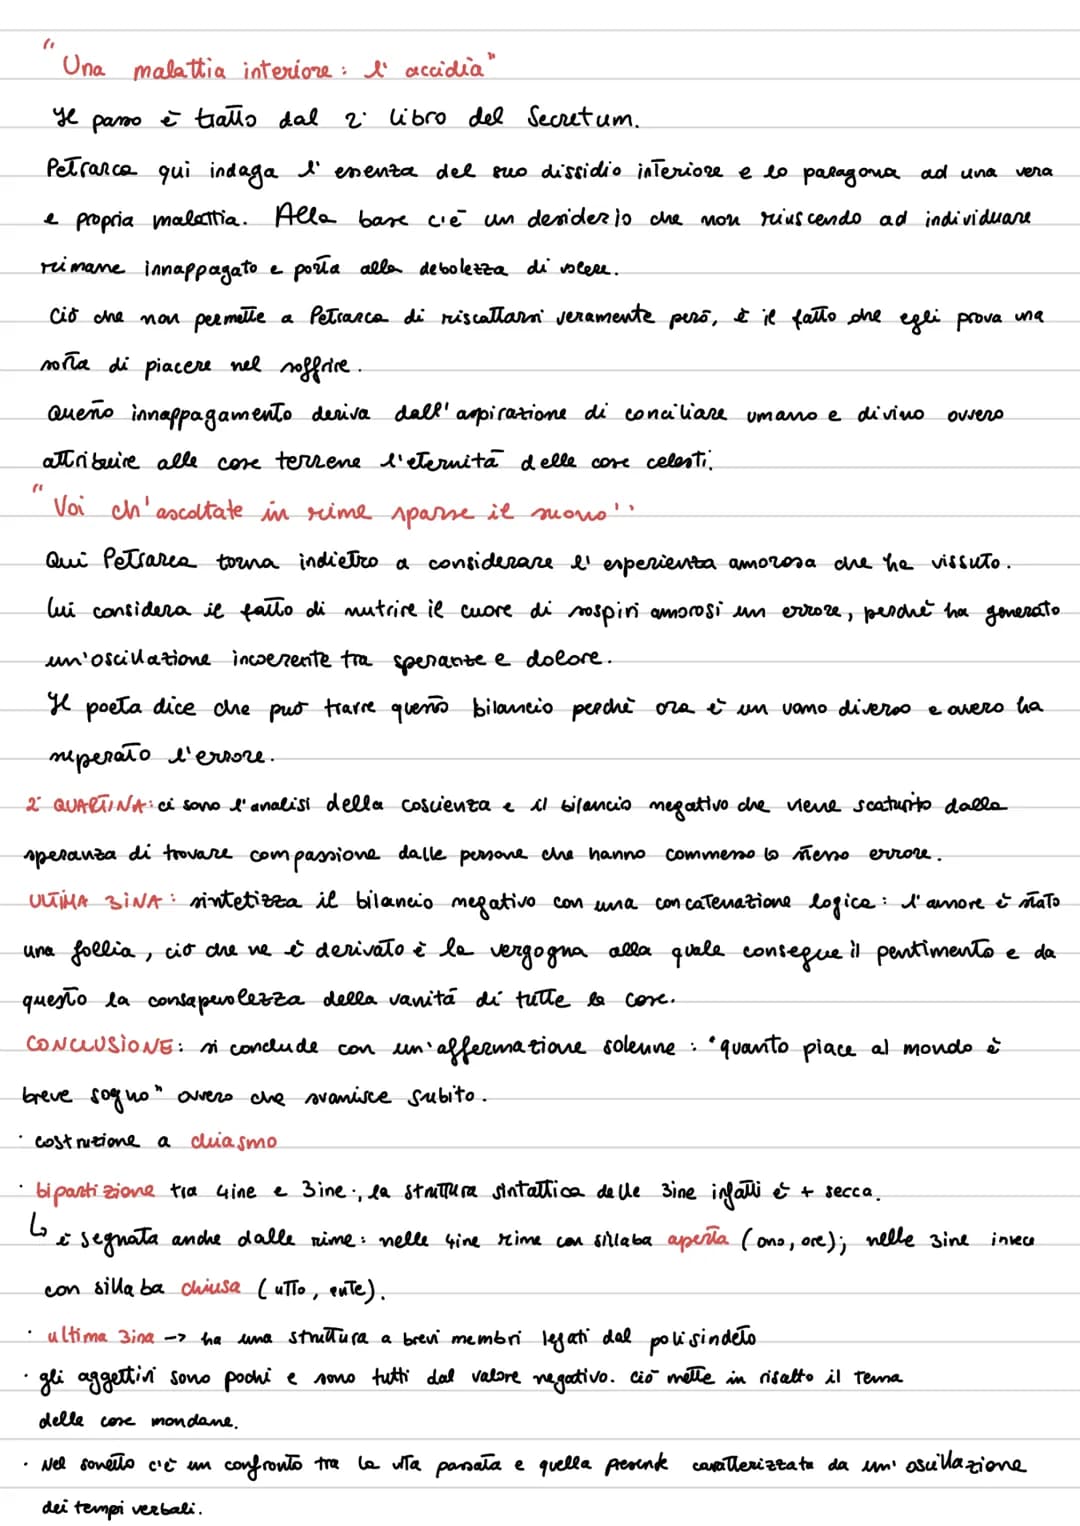 "Una malattia interiore: l'accidia"
Il passo è tratto dal 2° libro del Secretum.
Petrarca qui indaga l'essenza del suo dissidio interiore e lo paragona ad una vera
e propria malattia. Alla base c'è un desiderio che non riuscendo ad individuare
rimane innappagato e porta alla debolezza di volere.
Ciò che non permette a Petrarca di riscattarsi veramente però, è il fatto che egli prova una
sorta di piacere nel soffrire.
Questo innappagamento deriva dall'aspirazione di conciliare umano e divino ovvero
attribuire alle cose terrene l'eternità delle cose celesti.
"Voi ch'ascoltate in rime sparse il suono"
Qui Petrarca torna indietro a considerare l'esperienza amorosa che ha vissuto.
Lui considera il fatto di nutrire il cuore di sospiri amorosi un errore, perchè ha generato
un'oscillazione incoerente tra speranze e dolore.
Il poeta dice che può trarre questo bilancio perchè ora è un uomo diverso e ovvero ha
superato l'errore.
2° QUARTINA: ci sono l'analisi della coscienza e il bilancio negativo che viene scaturito dalla
speranza di trovare compassione dalle persone che hanno commesso lo stesso errore.
ULTIMA 3INA: sintetizza il bilancio negativo con una concatenazione logica: l'amore è stato
una follia, ciò che ne è derivato è la vergogna alla quale consegue il pentimento e da
questo la consapevolezza della vanità di tutte le cose.
CONCLUSIONE: si conclude con un'affermazione solenne: "quanto piace al mondo è
breve sogno" ovvero che svanisce subito.
· costruzione a chiasmo
· bipartizione tra 4ine e 3ine., la struttura sintattica delle 3ine infatti è + secca.
↳ è segnata anche dalle rime: nelle 4ine rime con sillaba aperta (ono, ore); nelle 3ine invece
con sillaba chiusa (utto, ente).
· ultima 3ina -> ha una struttura a brevi membri legati dal polisindeto
· gli aggettivi sono pochi e sono tutti dal valore negativo. ciò mette in risalto il tema
delle cose mondane.
· Nel sonetto c'è un confronto tra la vita passata e quella presente caratterizzata da un'oscillazione
dei tempi verbali.